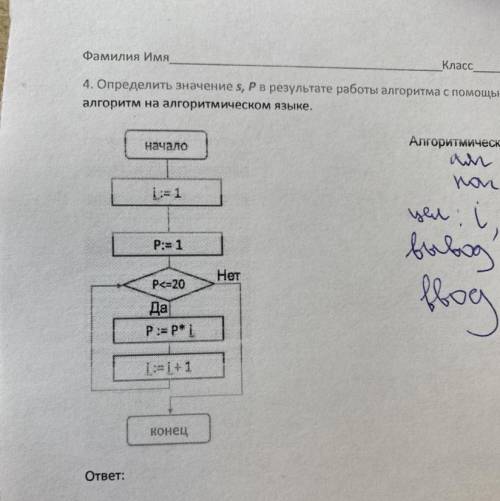 Фамилия Имя_____________________________Класс____
4. Определить значение s, P в результате работы алгоритма с помощью
алгоритм на алгоритмическом языке.
начало
i := 1
P:= 1
P<=20
Нет
Да
P := P* i
i := i + 1
конец
Ответ:
Алгоритмическ
алг
нач
цел: i,
вывод
ввод